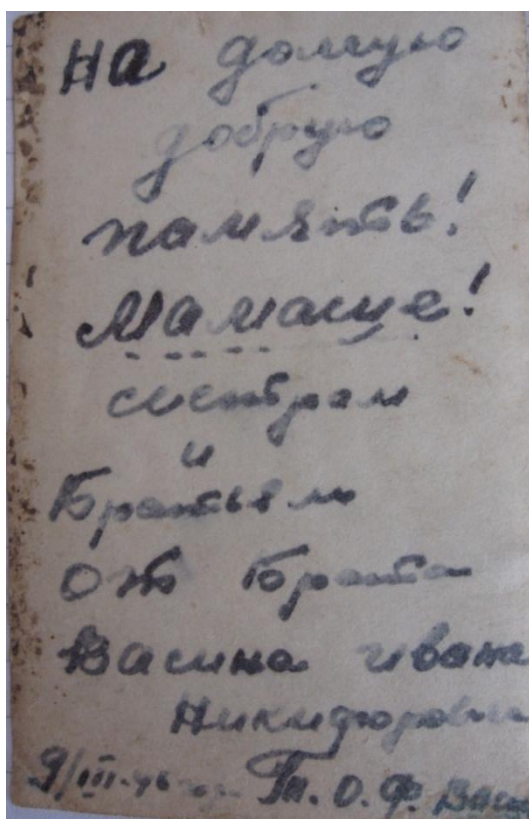 на долгую
добрую
память!
Мамаше!
сестрам
и
Братьям
от Брата
Васина ивана
Никифорови
9/III-46 Т. О. Ф. Васи